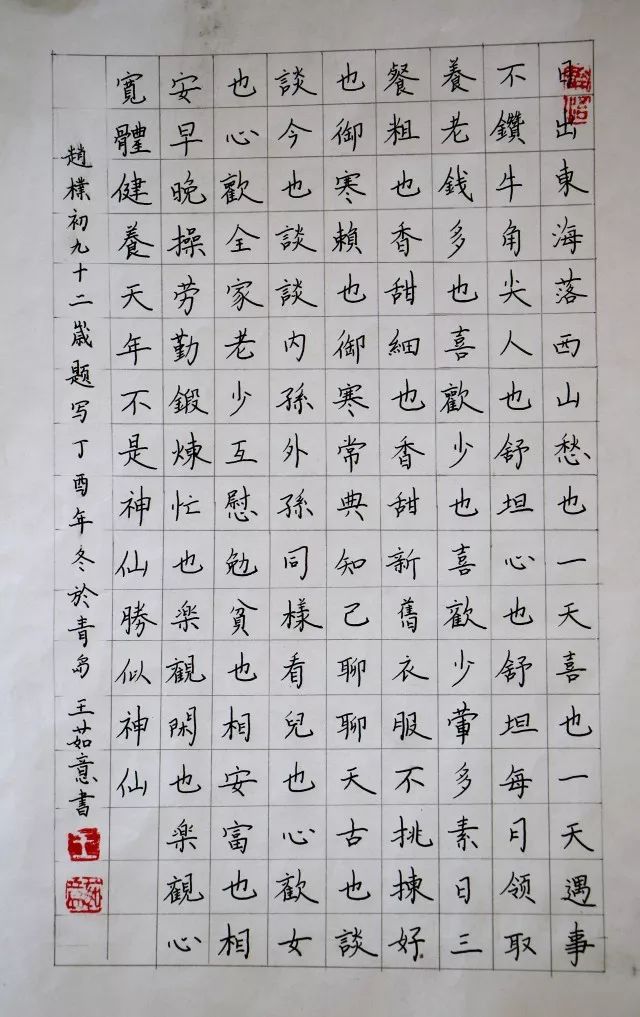 日出東海落西山愁也一天喜也一天遇事
不鑽牛角尖人也舒坦心也舒坦每月领取
養老銭多也喜歡少也喜歡少葷多素日三
餐粗也香甜細也香甜新舊衣服不挑揀好
也御寒賴也御寒常典知己聊聊天古也談
談今也談談内孫外孫同樣看兒也心歡女
也心歡全家老少互慰勉貧也相安富也相
安早晚操劳勤鍛煉忙也楽觀閑也楽觀心
寬體健養天年不是神仙勝似神仙
趙樸初九十二歲題写丁酉年冬於青岛 王茹意書
王